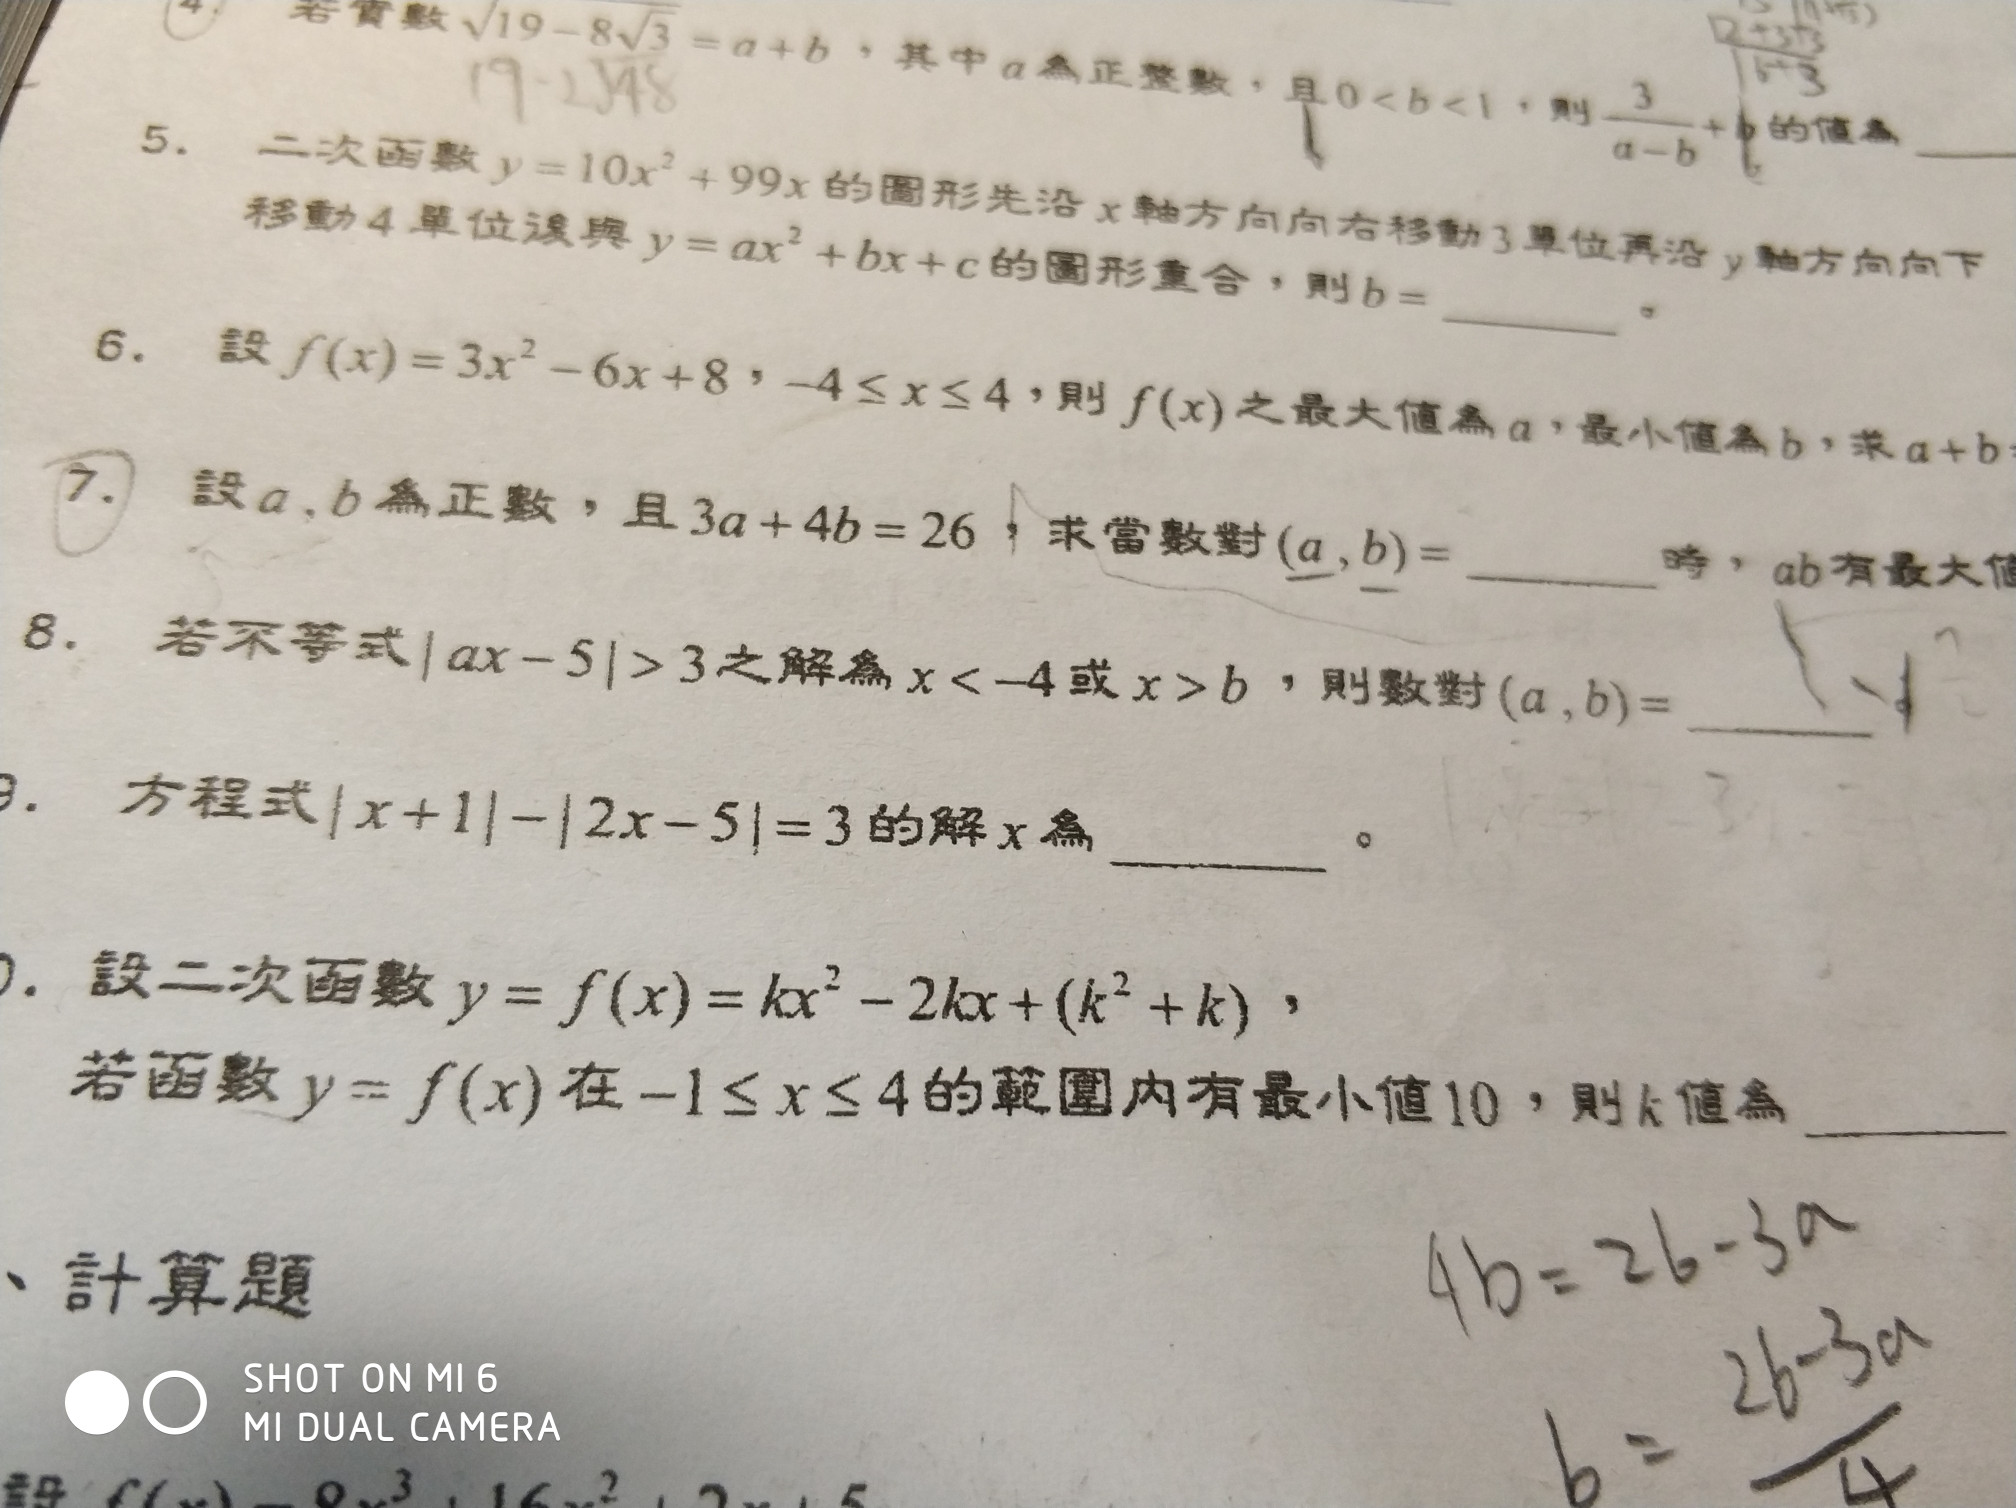 4. 若實數√19-8√3 = a+b，其中a為正整數，且0<b<1，則 3/(a-b) + b 的值為
19-2√48
5. 二次函數 y=10x²+99x 的圖形先沿 x 軸方向向右移動3單位再沿 y 軸方向向下
移動4單位後與 y=ax²+bx+c 的圖形重合，則b=______。
6. 設 f(x)=3x²-6x+8，-4≤x≤4，則 f(x)之最大值為a，最小值為b，求a+b
7. 設a,b為正數，且3a+4b=26，求當數對(a,b)=______時，ab有最大值
8. 若不等式|ax-5|>3之解為x<-4或x>b，則數對(a,b)=______
9. 方程式|x+1|-|2x-5|=3的解x為______。
0. 設二次函數 y=f(x)=kx²-2kx+(k²+k)，
若函數 y=f(x)在-1≤x≤4的範圍內有最小值10，則k值為______
4b=26-3a
b=26-3a/4
、計算題
SHOT ON MI 6
MI DUAL CAMERA
設 f(x)=8x³+16x²+2x+5